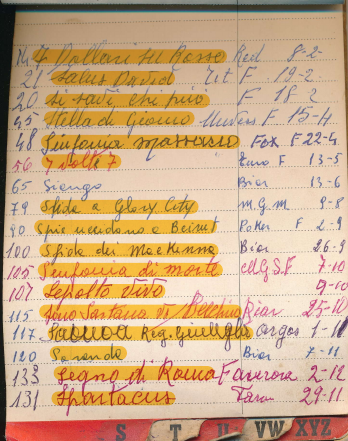 14 7 Dollari su Rosso Red 8-2
21 Salus David Tit F 19-2
20 Si salvi chi può F 18-2
45 Stella di Giorno Univers F 15-4
48 Sinfonia massacro Fox F 22-4
56 7 volte 7 Euro F 13-5
65 Siango Bior 13-6
79 Sfida a Glory City M.G.M 9-8
90 Spie uccidono a Beirut Poker F 2-9
100 Sfida dei MacKenna Bior 26-9
105 Sinfonia di morte 7-10
107 Sepolto vivo 9-10
115 Sono Sartana il Becchino Rian 25-10
117 Reg. Gielle Argos 1-11
120 Saranda Bior 7-11
133 Segno di Roma Fanrora 2-12
131 Spartacus Faro 29-11
S T U VW XYZ